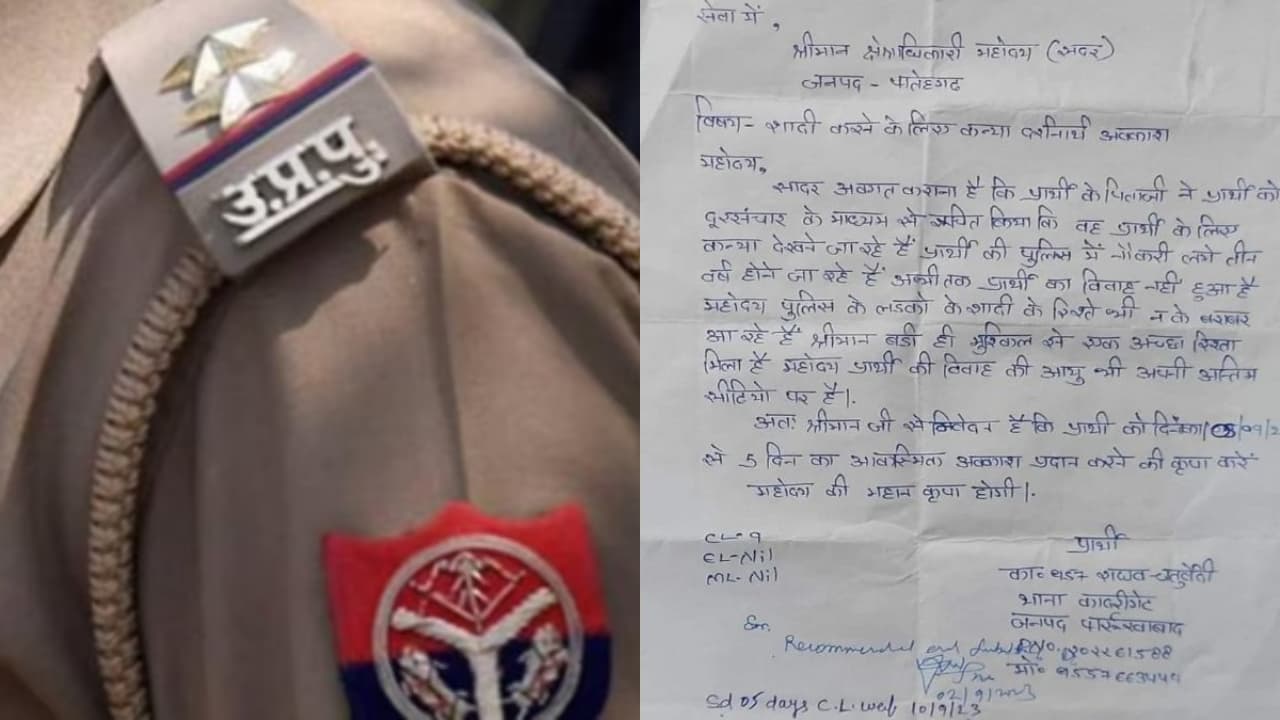 उ.प्र.पु.
सेवा में,
श्रीमान क्षेत्राधिकारी महोदय (सदर)
जनपद - फतेहगढ
विषय- शादी करने के लिए कन्या दर्शनार्थ अवकाश
महोदय,
सादर अवगत कराना है कि प्रार्थी के पिताजी ने प्रार्थी को
दूरसंचार के माध्यम से सूचित किया कि वह प्रार्थी के लिए
कन्या देखने जा रहे हैं प्रार्थी की पुलिस में नौकरी लगे तीन
वर्ष होने जा रहे हैं अभी तक प्रार्थी का विवाह नहीं हुआ है
महोदय पुलिस के लडको के शादी के रिश्ते भी न के बराबर
आ रहे हैं श्रीमान बडी ही मुश्किल से एक अच्छा रिश्ता
मिला है महोदय प्रार्थी की विवाह की आयु भी अपनी अन्तिम
सीढियो पर है।
अतः श्रीमान जी से निवेदन है कि प्रार्थी को
से 5 दिन का आकस्मिक अवकाश प्रदान करने की कृपा करें
महोदय की महान कृपा होगी।
CL-9
EL-Nil
ML-Nil
प्रार्थी
का० राघव चतुर्वेदी
थाना कादरीगेट
जनपद फर्रुखाबाद
Sir,
Recommended and
02/9/2023
Sd 05 days C.L. wef 10/9/23